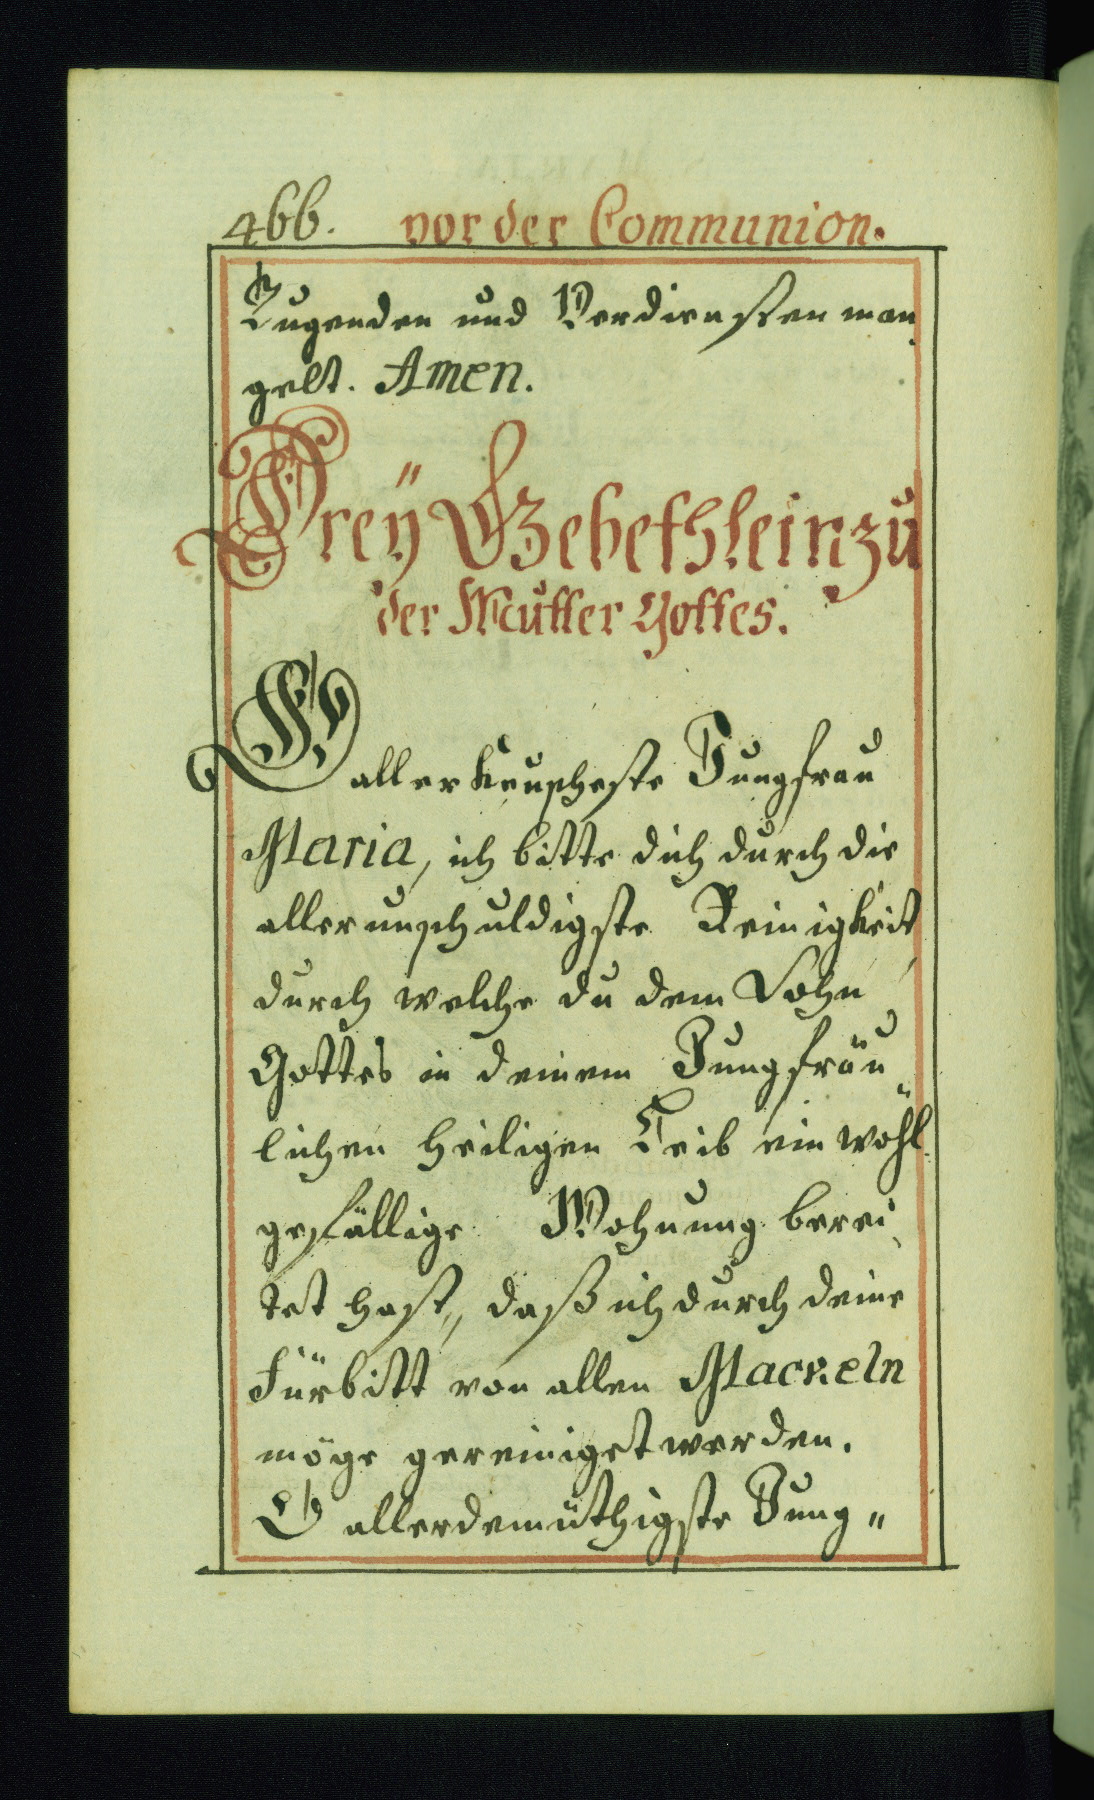 466. vor der Communion.
Tugenden und Verdiensten man„
gelt. Amen.
Dreÿ Gebethlein zu
der Mutter Gottes.
O allerkeuscheste Jungfrau
Maria, ich bitte dich durch die
allerunschuldigste Reinigkeit,
durch welche du dem Sohn
Gottes in deinem Jungfräu„
lichen heiligen Leib ein wohl„
gefällige Wohnung berei„
tet hast, daß ich durch deine
Fürbitt von allen Mackeln
möge gereiniget werden.
O allerdemüthigste Jung„